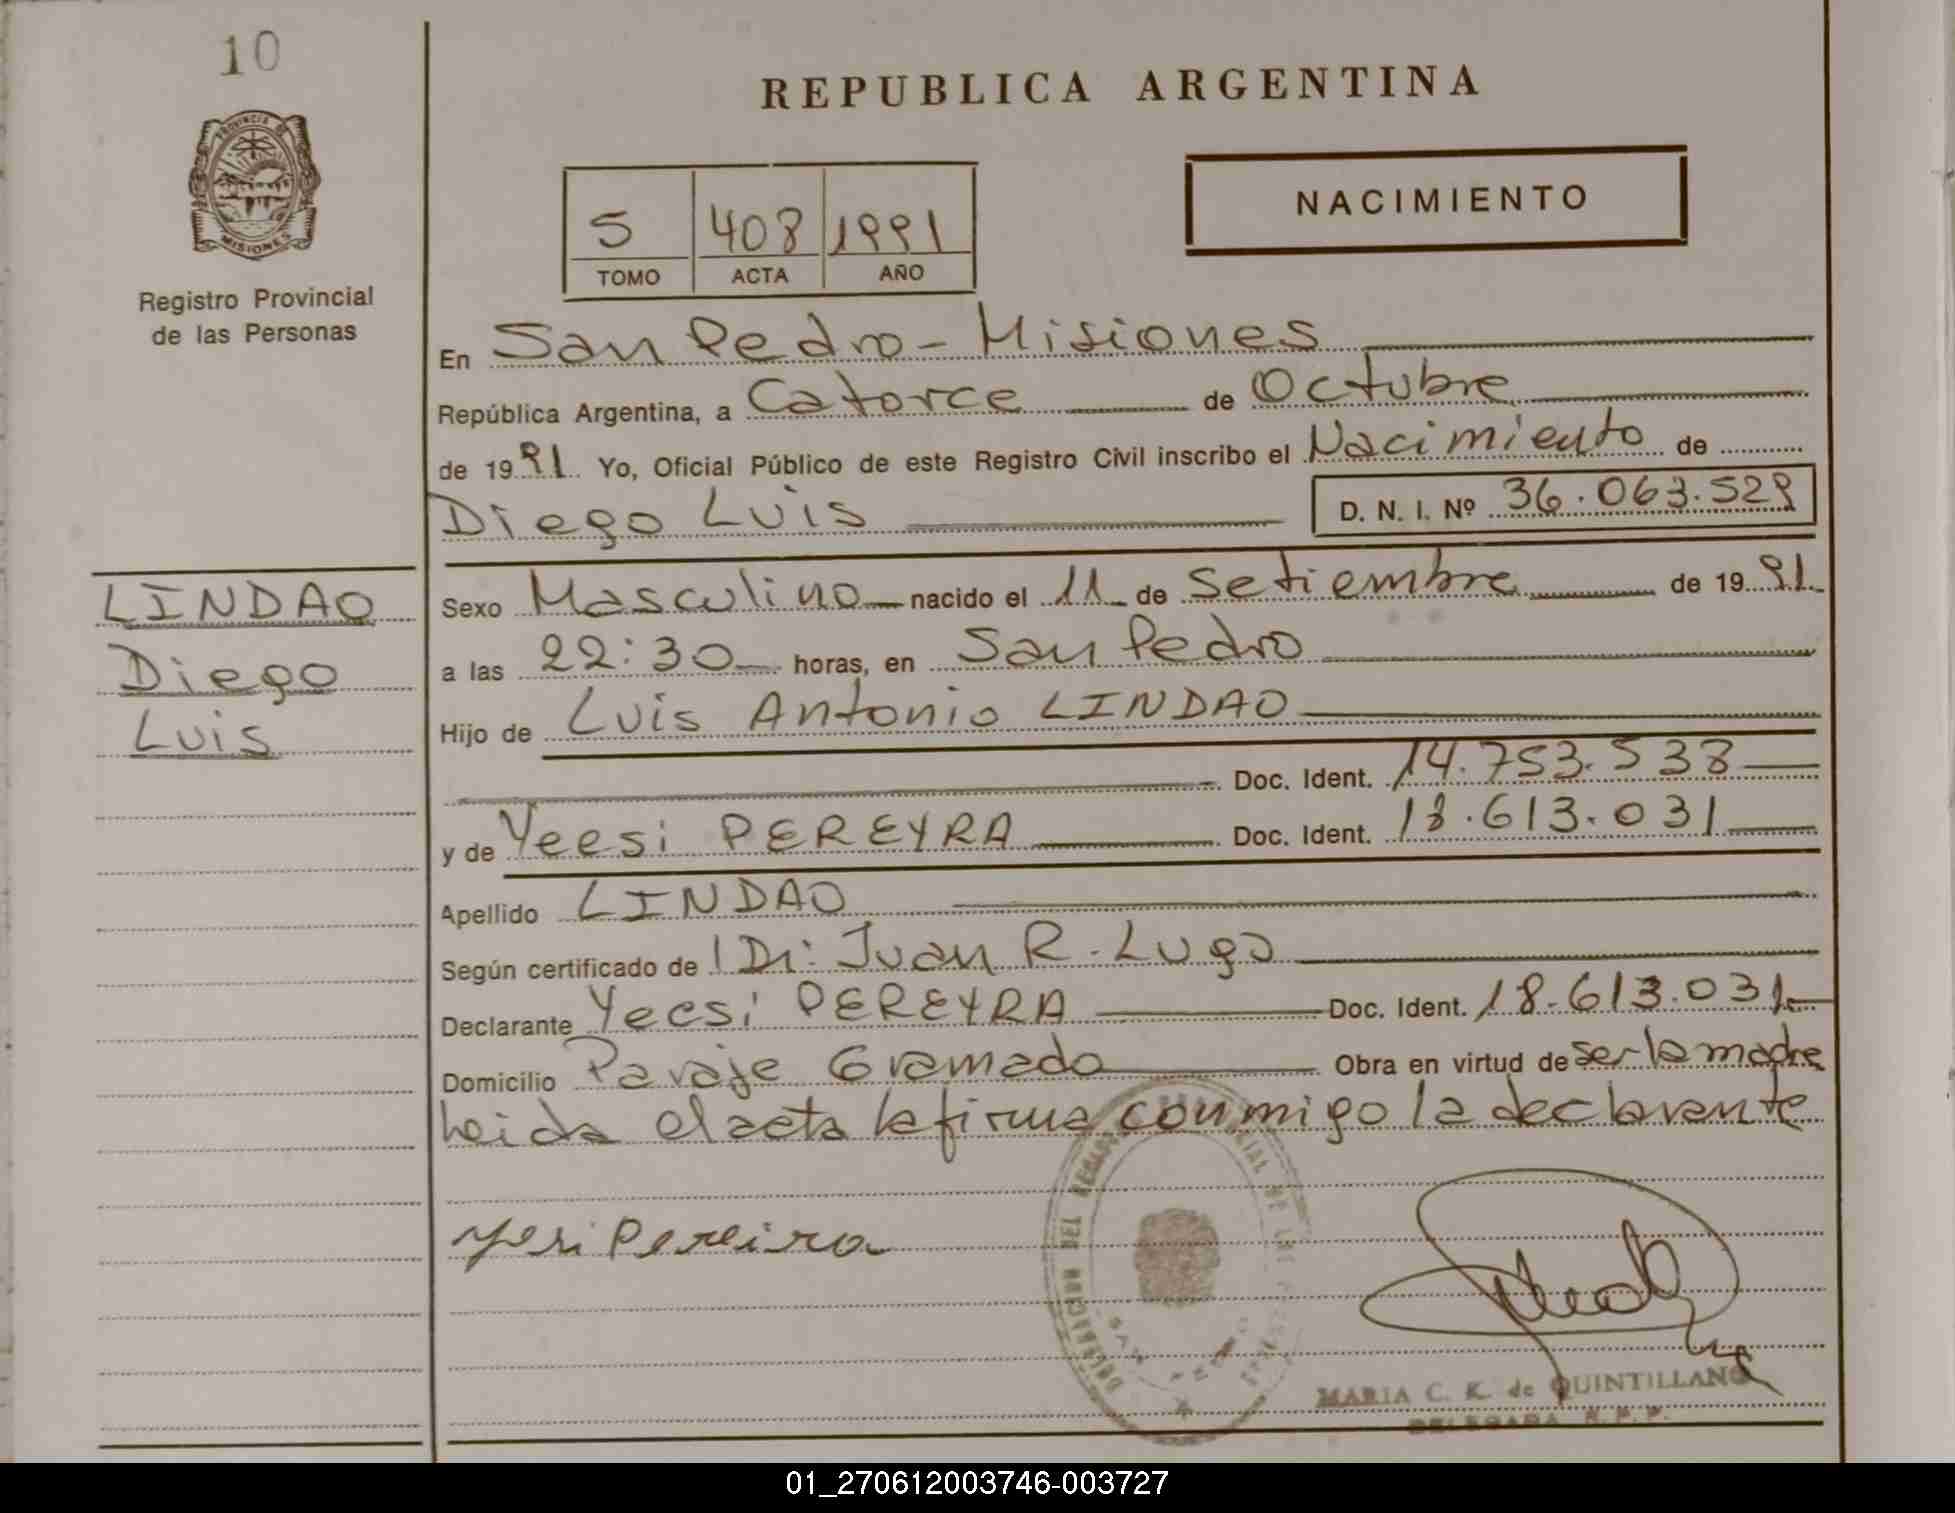 10
PROVINCIA DE
MISIONES
Registro Provincial
de las Personas
REPUBLICA ARGENTINA
NACIMIENTO
5 408 1991
TOMO ACTA AÑO
En San Pedro - Misiones
República Argentina, a Catorce de Octubre
de 1991. Yo, Oficial Público de este Registro Civil inscribo el Nacimiento de
Diego Luis D. N. I. Nº 36.063.529
LINDAO
Diego
Luis
Sexo Masculino nacido el 11 de Setiembre de 1991.
a las 22:30 horas, en San Pedro
Hijo de Luis Antonio LINDAO
Doc. Ident. 14.753.538
y de Yeesi PEREYRA Doc. Ident. 18.613.031
Apellido LINDAO
Según certificado de Dr. Juan R. Lugo
Declarante Yeesi PEREYRA Doc. Ident. 18.613.031
Domicilio Paraje Gramado Obra en virtud de ser la madre
Leida el acta la firma conmigo la declarante
Yesi Pereira
DELEGACION DEL REGISTRO PROVINCIAL DE LAS
SAN PEDRO
MARIA C. K. de QUINTILLAN
DELEGADA R. P. P.
01_270612003746-003727